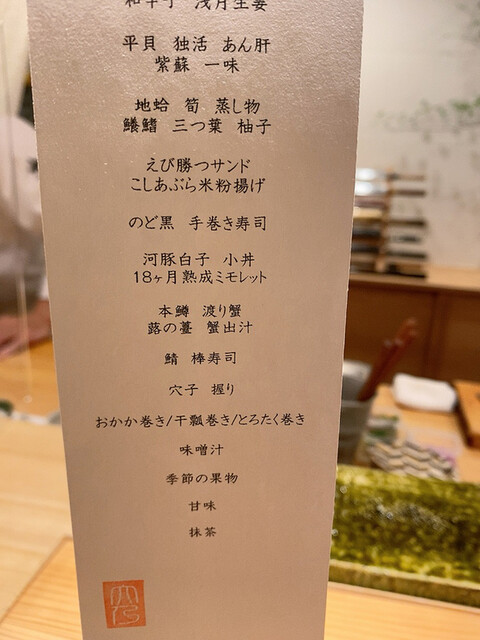 和辛子 浅月生姜
平貝 独活 あん肝
紫蘇 一味
地蛤 筍 蒸し物
鱶鰭 三つ葉 柚子
えび勝つサンド
こしあぶら米粉揚げ
のど黒 手巻き寿司
河豚白子 小丼
18ヶ月熟成ミモレット
本鱒 渡り蟹
蕗の薹 蟹出汁
鯖 棒寿司
穴子 握り
おかか巻き/干瓢巻き/とろたく巻き
味噌汁
季節の果物
甘味
抹茶